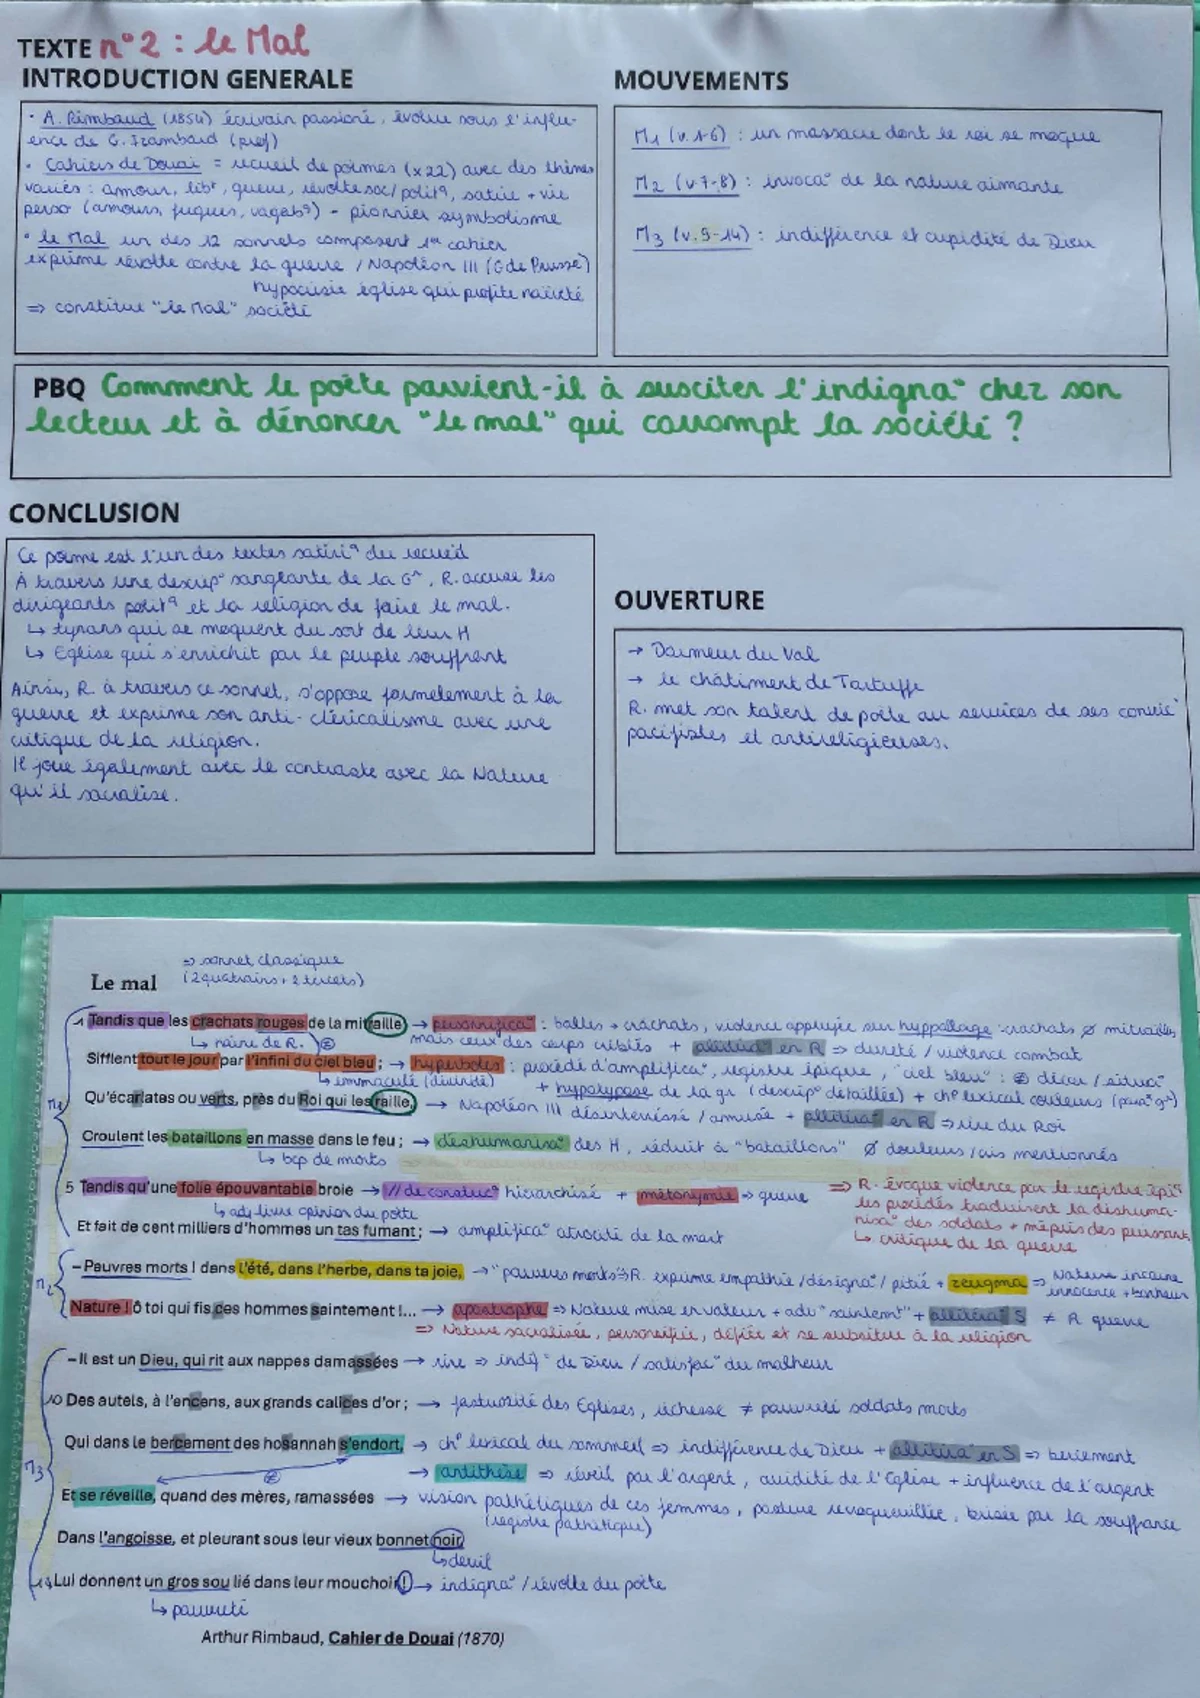 TEXTE n°2 : le Mal
INTRODUCTION GENERALE
· A. Rimbaud (1854) écrivain passioné, évolue sous l'influ-
ence de G. Izambaud (prof)
· Cahiers de Douai = recueil de poèmes (x22) avec des thèmes
variés : amour, libᵗ, guerre, révolte soc/politq, satire + vie
perso (amours, fugues, vagabᵍ) - pionnier symbolisme
· le Mal un des 12 sonnets composent 1er cahier
exprime révolte contre la guerre / Napoléon III (G de Prusse)
hypocrisie église qui profite naïveté
=> constitue "le Mal" société
MOUVEMENTS
M1 (v.1-6) : un massacre dont le roi se moque
M2 (v.7-8) : invoca° de la nature aimante
M3 (v.9-14) : indifférence et cupidité de Dieu
PBQ Comment le poète parvient-il à susciter l'indigna° chez son
lecteur et à dénoncer "le mal" qui corrompt la société ?
CONCLUSION
Ce poème est l'un des textes satiriq du recueil
À travers une descrip° sanglante de la G^, R. accuse les
dirigeants politq et la religion de faire le mal.
↳ tyrans qui se moquent du sort de leur H
↳ Eglise qui s'enrichit par le peuple souffrent
Ainsi, R. à travers ce sonnet, s'oppose formelement à la
guerre et exprime son anti-cléricalisme avec une
critique de la religion.
Il joue également avec le contraste avec la Nature
qu'il sacralise.
OUVERTURE
→ Dormeur du Val
→ le châtiment de Tartuffe
R. met son talent de poète au services de ses convic°
pacifistes et antireligieuses.
=> sonnet classique
Le mal (2 quatrains + 2 tercets)
1 Tandis que les crachats rouges de la mitraille → personnifica° : balles → crachats, violence appuyée sur hyppallage : crachats ∅ mitrailles,
↳ haine de R. mais ceux des corps criblés + allitéra° en R => dureté / violence combat
Sifflent tout le jour par l'infini du ciel bleu ; → hyperboles : procédé d'amplifica°, registre épique, "ciel bleu" : ≠ décor / situa°
↳ immaculé (divinité) + hypotypose de la gr (descrip° détaillée) + chp lexical couleurs
Qu'écarlates ou verts, près du Roi qui les raille, → Napoléon III désinteressé / amusé + allitéra° en R => rire du Roi
Croulent les bataillons en masse dans le feu ; → déshumanisa° des H, réduit à "bataillons" ∅ douleurs / cris mentionnés
↳ bcp de morts
5 Tandis qu'une folie épouvantable broie → // de construc° hiérarchisé + métonymie => guerre
↳ adj livre opinion du poète
=> R. évoque violence par le registre épiq
les procédés traduisent la déshuma-
nisa° des soldats + mépris des puissant
↳ critique de la guerre
Et fait de cent milliers d'hommes un tas fumant ; → amplifica° atrocité de la mort
M2
– Pauvres morts ! dans l'été, dans l'herbe, dans ta joie, → "pauvres morts" => R. exprime empathie / désigna° / pitié + zeugma => Nature incarne
innocence + bonheur
Nature ! ô toi qui fis ces hommes saintement !... → apostrophe => Nature mise en valeur + adv "saintemt" + allitéra° S ≠ R guerre
=> Nature sacralisée, personnifiée, déifiée et se substitue à la religion
M3
– Il est un Dieu, qui rit aux nappes damassées → rire => indifᶜᵉ de Dieu / satisfac° du malheur
10 Des autels, à l'encens, aux grands calices d'or ; → fastuosité des Eglises, richesse ≠ pauvreté soldats morts
Qui dans le bercement des hosannah s'endort, → chp lexical du sommeil => indifférence de Dieu + allitéra° en S => bercement
→ antithèse => réveil par l'argent, avidité de l'Eglise + influence de l'argent
Et se réveille, quand des mères, ramassées → vision pathétiques de ces femmes, posture recroquevillée, brisée par la souffrance
(registre pathétique)
Dans l'angoisse, et pleurant sous leur vieux bonnet noir,
↳ deuil
14 Lui donnent un gros sou lié dans leur mouchoir ! → indigna° / révolte du poète
↳ pauvreté
Arthur Rimbaud, Cahier de Douai (1870)